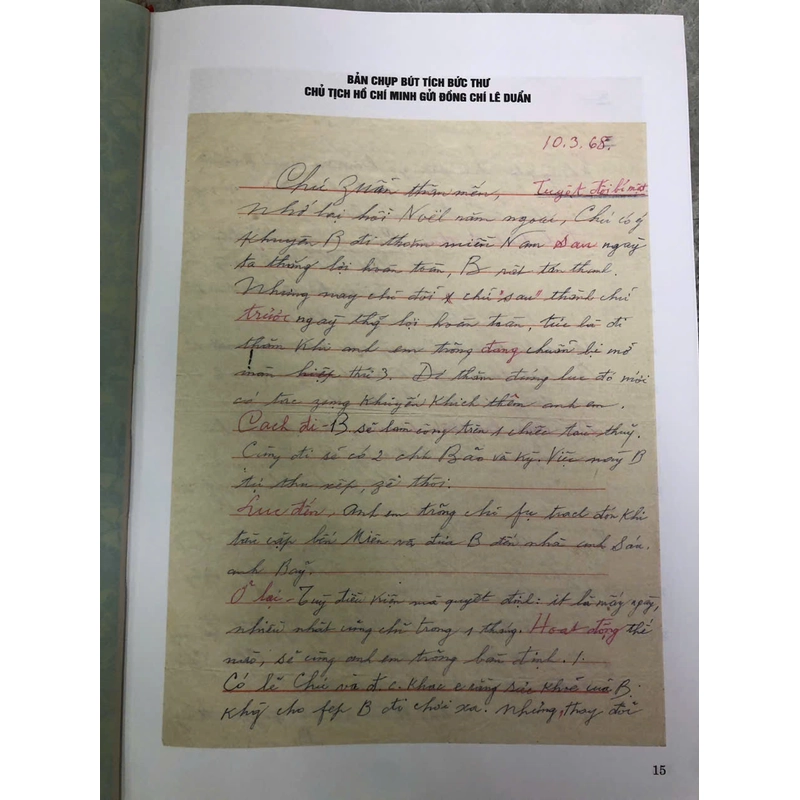 BẢN CHỤP BÚT TÍCH BỨC THƯ
CHỦ TỊCH HỒ CHÍ MINH GỬI ĐỒNG CHÍ LÊ DUẨN
10.3.68.
Chú Zuẩn thân mến, Tuyệt đối bí mật
Nhớ lại hồi Noël năm ngoái, Chú có ý
khuyên B đi thăm miền Nam sau ngày
ta thắng lợi hoàn toàn, B rất tán thành.
Nhưng nay chú đổi chữ "sau" thành chữ
trước ngày thắng lợi hoàn toàn, tức là đi
thăm khi anh em trong đang chuẩn bị mở
màn hiệp thứ 3. Đi thăm đúng lúc đó mới
có tác zụng khuyến khích thêm anh em.
Cách đi - B sẽ làm công trên 1 chiếc tàu thuỷ.
Cùng đi sẽ có 2 chú Bảo và Kỳ. Việc này B
tự thu xếp, zễ thôi.
Lúc đến, anh em trong chỉ fụ trách đón khi
tàu cập bến Miên và đưa B đến nhà anh Sáu,
anh Bảy.
Ở lại - Tuỳ điều kiện mà quyết định: ít là mấy ngày,
nhiều nhất cũng chỉ trong 1 tháng. Hoạt động thế
nào, sẽ cùng anh em trong bàn định.
Có lẽ Chú và đ.c. khác e rằng sức khoẻ của B.
không cho fép B đi chơi xa. Nhưng, thay đổi
15